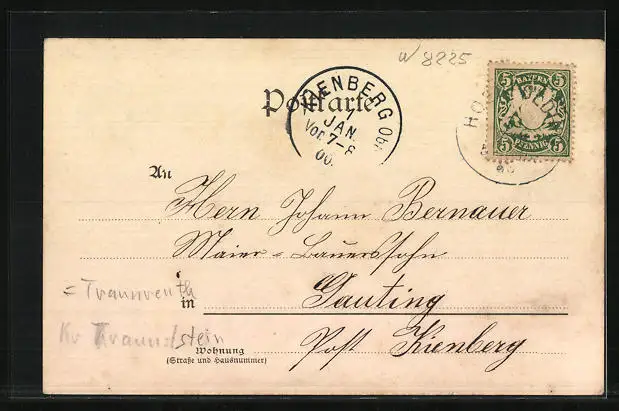 W 8225
Postkarte
KIENBERG Obb.
7
JAN.
Vor. 7-8
00.
5 BAYERN 5
5 PFENNIG 5
An
Herrn Johann Bernauer
Maier-Bauerssohn
= Traunreuth
in Gauting
Kr Traunstein
Wohnung
(Straße und Hausnummer)
Post Kienberg